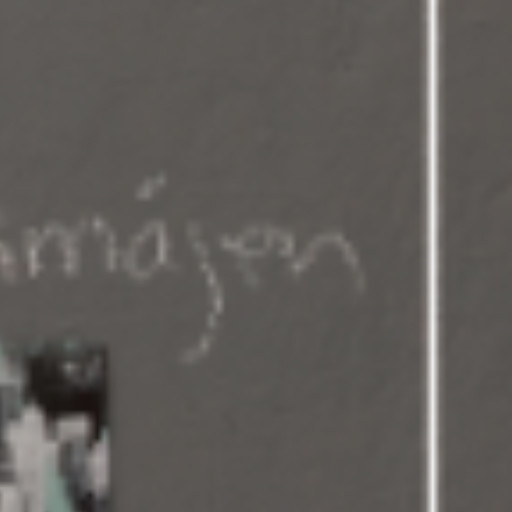 imájen